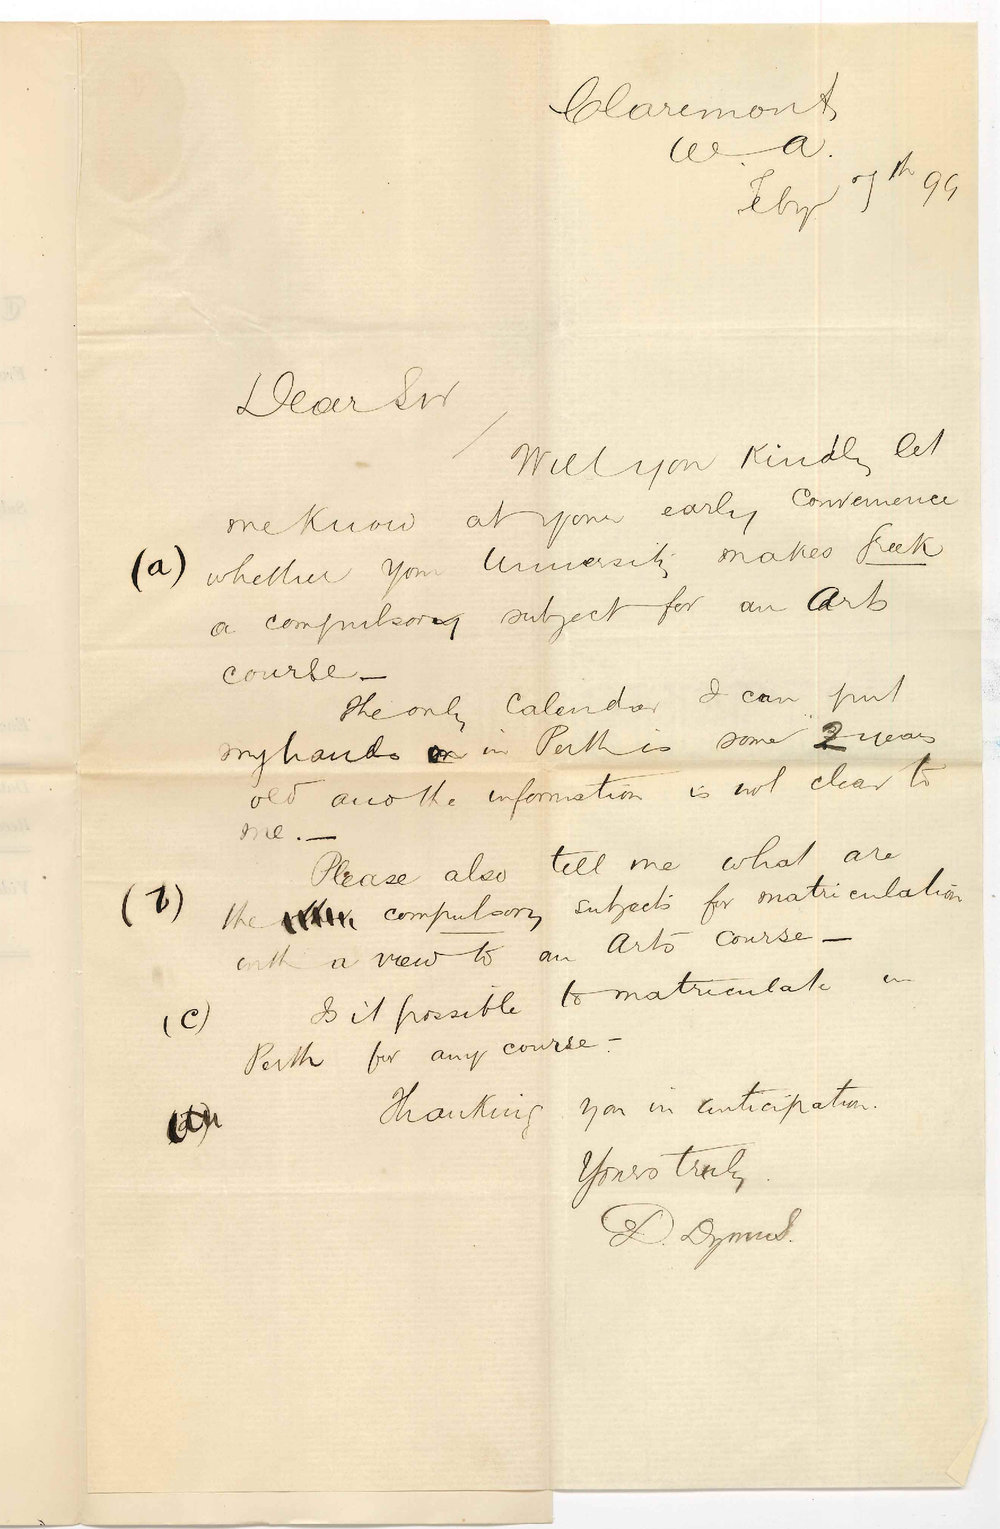 Claremont
W. A.
Feby 7th 99
Dear Sir
Will you kindly let
me know at your early convenience
(a) whether your University makes Greek
a compulsory subject for an Arts
course —
The only Calendar I can put
my hands in Perth is some 2 years
old and the information is not clear to
me. —
Please also tell me what are
(b) the compulsory subjects for matriculation
with a view to an Arts course —
(c) Is it possible to matriculate in
Perth for any course —
Thanking you in anticipation.
Yours truly.
D.